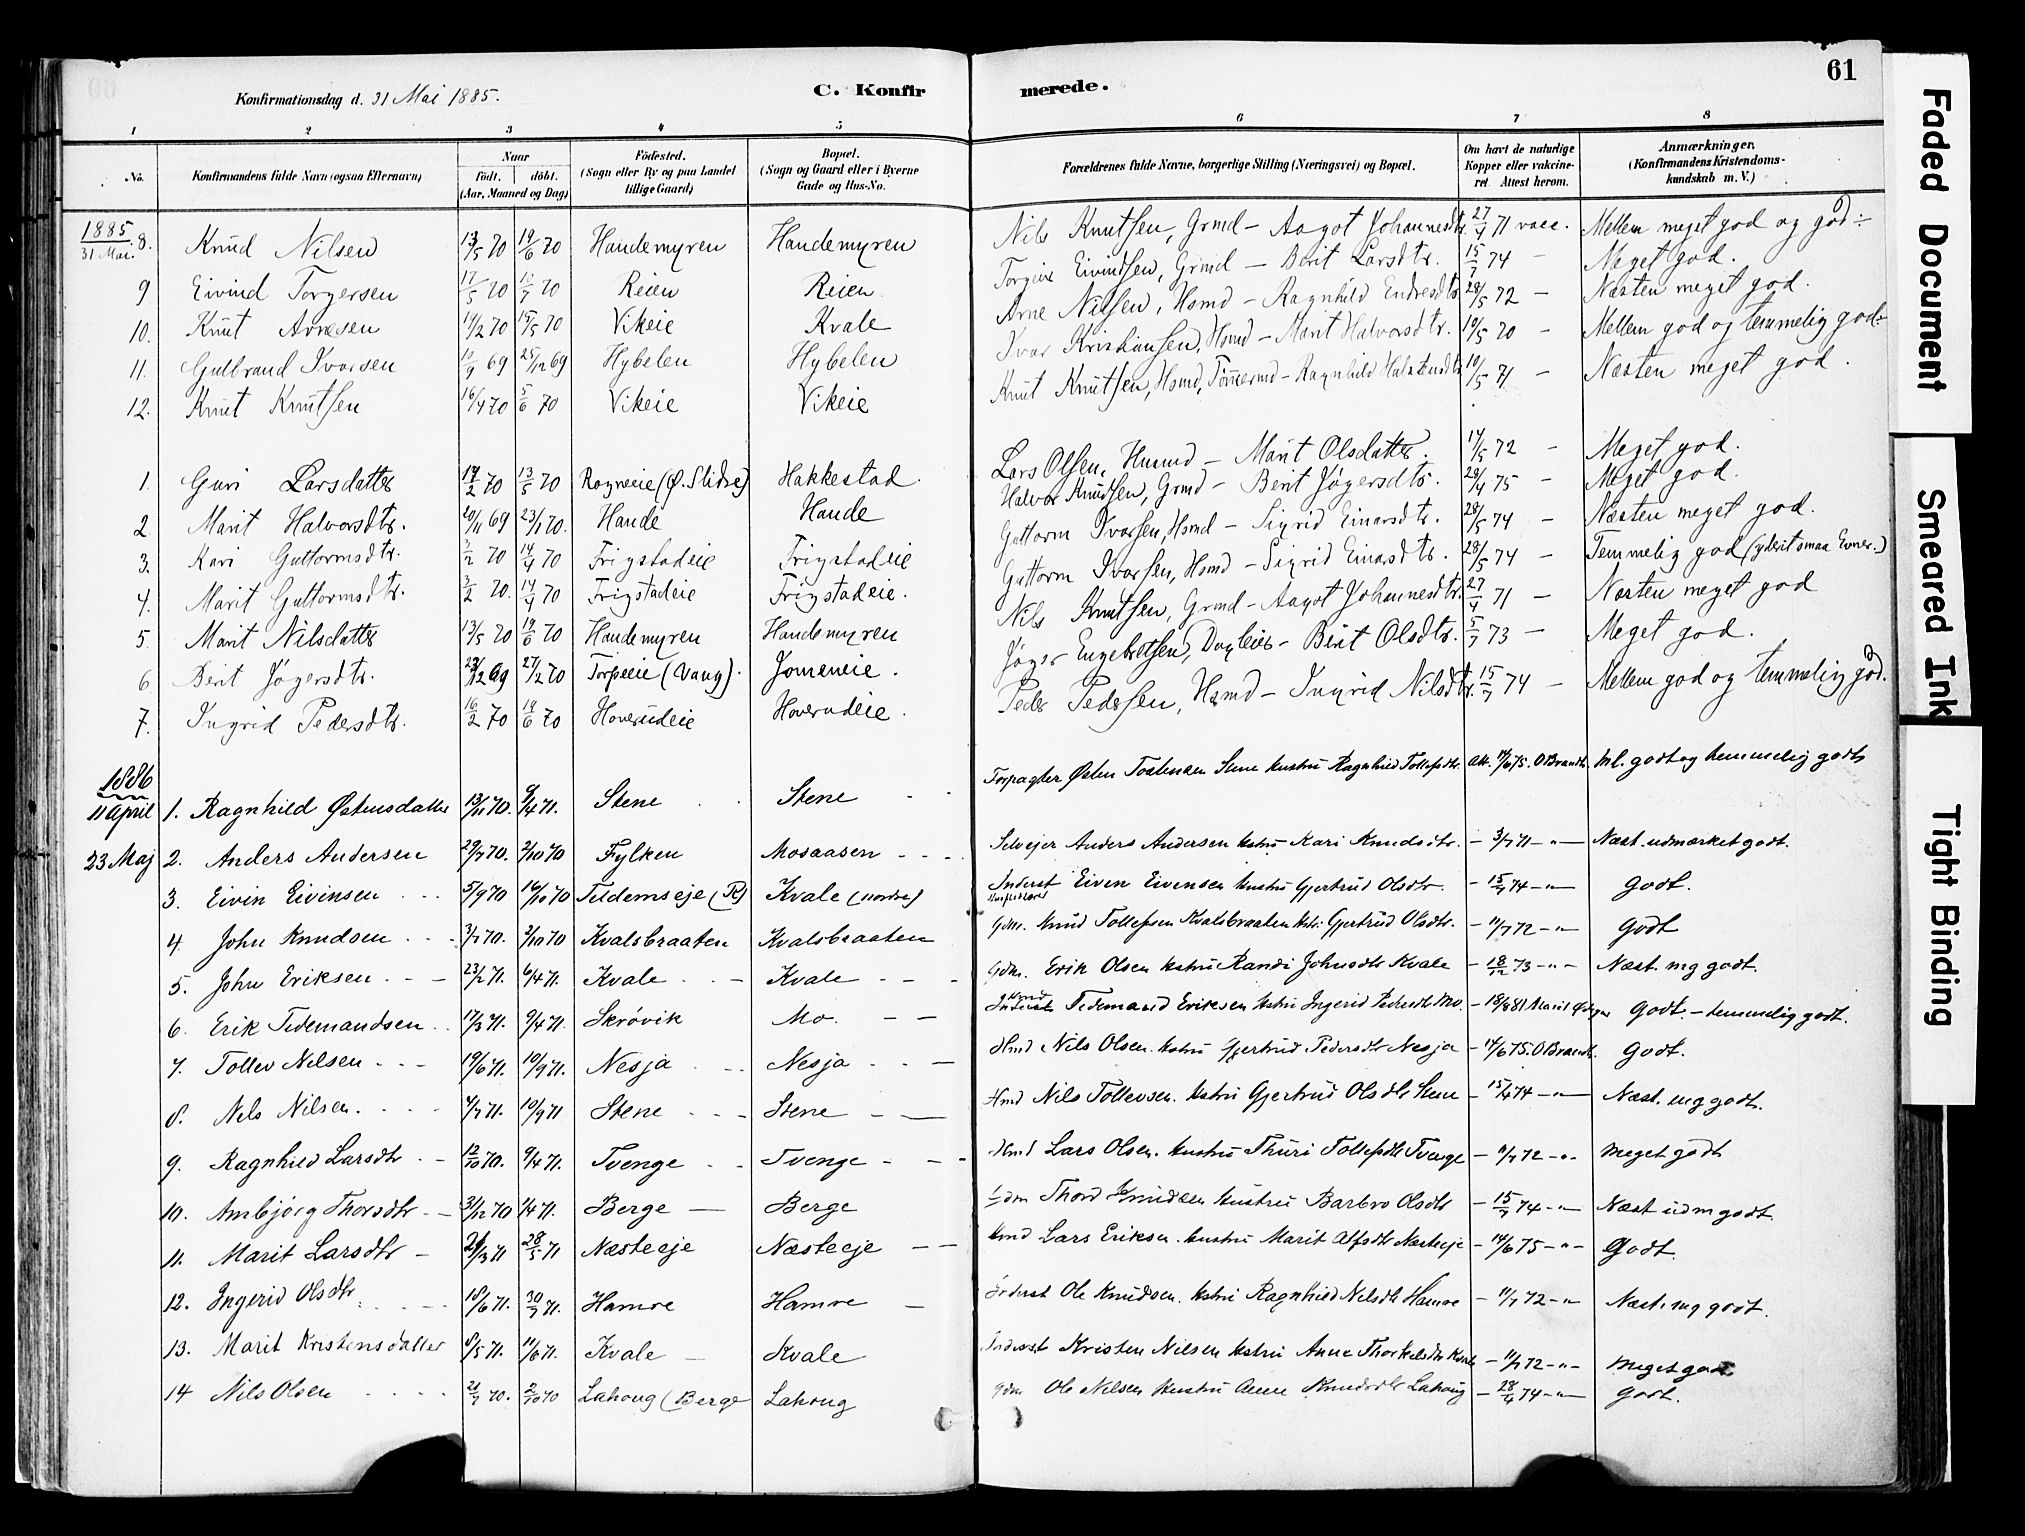 61
Konfirmationsdag d. 31 Mai 1885. C. Konfir merede.
1 2 3 4 5 6 7 8
No. Konfirmandens fulde Navn (ogsaa Efternavn) Naar födt. döbt. (Aar, Maaned og Dag) Födested. (Sogn eller By og paa Landet tillige Gaard) Bopæl. (Sogn og Gaard eller i Byerne Gade og Hus-No. Forældrenes fulde Navne, borgerlige Stilling (Næringsvei) og Bopæl. Om havt de naturlige Kopper eller vakcineret. Attest herom. Anmærkninger. (Konfirmandens Kristendomskundskab m. V.)
1885 31 Mai. 8. Knud Nilsen 13/5 70 19/6 70 Handemyren Handemyren Nils Knutsen, Grmd - Aagot Johannesdtr. 27/4 71 vacc. Mellem meget god og god
9 Eivind Torgersen 17/5 70 10/7 70 Reien Reien Torgeir Eivindsen, Grmd - Berit Larsdtr. 15/7 74 - Meget god.
10. Knut Arnesen 11/2 70 15/5 70 Vikeie Kvale Arne Nilsen, Hsmd - Ragnhild Endresdtr. 28/5 72 - Næsten meget god.
11. Gulbrand Ivarsen 10/9 69 25/12 69 Hybelen Hybelen Ivar Kristiansen, Hsmd - Marit Halvorsdtr. 10/5 70 - Mellem god og temmelig god
12. Knut Knutsen 16/4 70 5/6 70 Vikeie Vikeie Knut Knutsen, Hsmd, Tömermd - Ragnhild Halstensdtr 10/5 71 - Næsten meget god.
1. Guri Larsdatter 14/2 70 13/5 70 Rogneeie (Ø. Slidre) Hakkestad. Lars Olsen, Husmd - Marit Olsdatter. 14/5 72 - Meget god.
2 Marit Halvorsdtr. 20/11 69 23/1 70. Hande Hande Halvor Knudsen, Grmd - Berit Jøgersdtr. 29/4 75 - Meget god.
3. Kari Guttormsdtr. 3/2 70 14/4 70 Frigstadeie Frigstadeie Guttorm Ivarsen, Hsmd - Sigrid Einarsdtr. 28/5 74 - Næsten meget god.
4. Marit Guttormsdtr. 3/2 70. 14/4 70 Frigstadeie Frigstadeie. Guttorm Ivarsen, Hsmd - Sigrid Einarsdtr. 28/5 74 - Temmelig god (yderst smaa Evner.)
5. Marit Nilsdatter 13/5 70 19/6 70 Handemyren Handemyren Nils Knutsen, Grmd - Aagot Johannesdtr. 27/4 71 - Næsten meget god
6. Berit Jøgersdtr. 29/12 69 27/2 70 Torpeeie (Vang). Jomeneie. Jøger Engebretsen, Dagleier - Berit Olsdtr. 5/7 73 - Meget god.
7. Ingrid Pedersdtr. 16/2 70 19/6 70 Hoverudeie Hoverudeie. Peder Pedersen, Hsmd - Ingrid Nilsdtr. 15/7 74 - Mellem god og temmelig god.
1886
11 April 1. Ragnhild Østensdatter 13/11 70. 9/4 71. Stene Stene Forpagter Østen Tostensen Stene hustru Ragnhild Tollefsdtr. Att. 14/6 75. O Brandt. Ml. godt og temmelig godt
23 Maj 2. Anders Andersen 29/7 70. 2/10 70 Fylken Mosaasen Selvejer Anders Andersen hstru Kari Knudsdtr. - 3/7 71 - " - Næst. udmærket godt.
3. Eivin Eivinsen 5/9 70 16/10 70 Tildemseje (R) Kvale (nordre) Inderst Eiven Eivensen hustru Gjertrud Olsdtr. - 15/7 74 - " - Godt.
4. John Knudsen 3/7 70. 2/10 70 Kvalsbraaten Kvalsbraaten Gdm. Knud Tollefsen Kvalsbraaten hstr. Gjertrud Olsdtr. - 11/7 72 - " Godt
5. John Eriksen 23/2 71. 6/4 71. Kvale Kvale Gdm. Erik Olsen hstru Randi Johnsdtr Kvale - 18/2 73 - " - Næst. mg godt.
6. Erik Tidemandsen 17/3 71. 9/4 71. Skrövik Mo. Inderst Tidemand Eriksen hstru Ingerid Pedersdtr Mo. - 18/8 81 Marit Godt. - temmelig godt.
7. Tollev Nilsen 19/6 71. 10/9 71. Nesja Nesja Hmd Nils Olsen. hstru Gjertrud Pedersdtr Nesja - 14/6 75. O Brandt. Godt.
8. Nils Nilsen. 4/7 71. 10/9 71 Stene Stene Hmd Nils Tollevsen. hstru Gjertrud Olsdtr Stene - 15/7 74 - " - Næst. mg godt.
9. Ragnhild Larsdtr 12/10 70. 9/4 71. Tvenge Tvenge Hmd Lars Olsen. hustru Thuri Tollefsdtr Tvenge - 11/7 72 - " - Meget godt
10. Ambjörg Thorsdtr 31/12 70 1/4 71. Berge Berge Gdm Thord Knudsen hustru Barbro Olsdtr - 15/7 74 - " - Næst udm godt.
11. Marit Larsdtr 21/3 71 28/5 71 Næsteeje Næsteeje Hmd Lars Eriksen. hustru Marit Alfsdtr Næsteeje - 14/6 75 - " - Godt.
12. Ingerid Olsdtr 18/6 71. 30/7 71. Hamre Hamre Inderst Ole Knudsen. hstru Ragnhild Nilsdtr Hamre - 11/7 72 - " Næst. mg godt.
13. Marit Kristensdatter 8/5 71. 11/6 71. Kvale Kvale Inderst Kristen Nilsen hstru Anne Thorkelsdtr Kvale - 11/7 72 - " - Meget godt
14 Nils Olsen 21/7 70. 2/10 70 Lahoug (Berge Lahoug Gdm Ole Nilsen hustru Anne Knudsdtr Lahoug - 28/4 74 - " - Godt.
Faded Document
Smeared Ink
Tight Binding